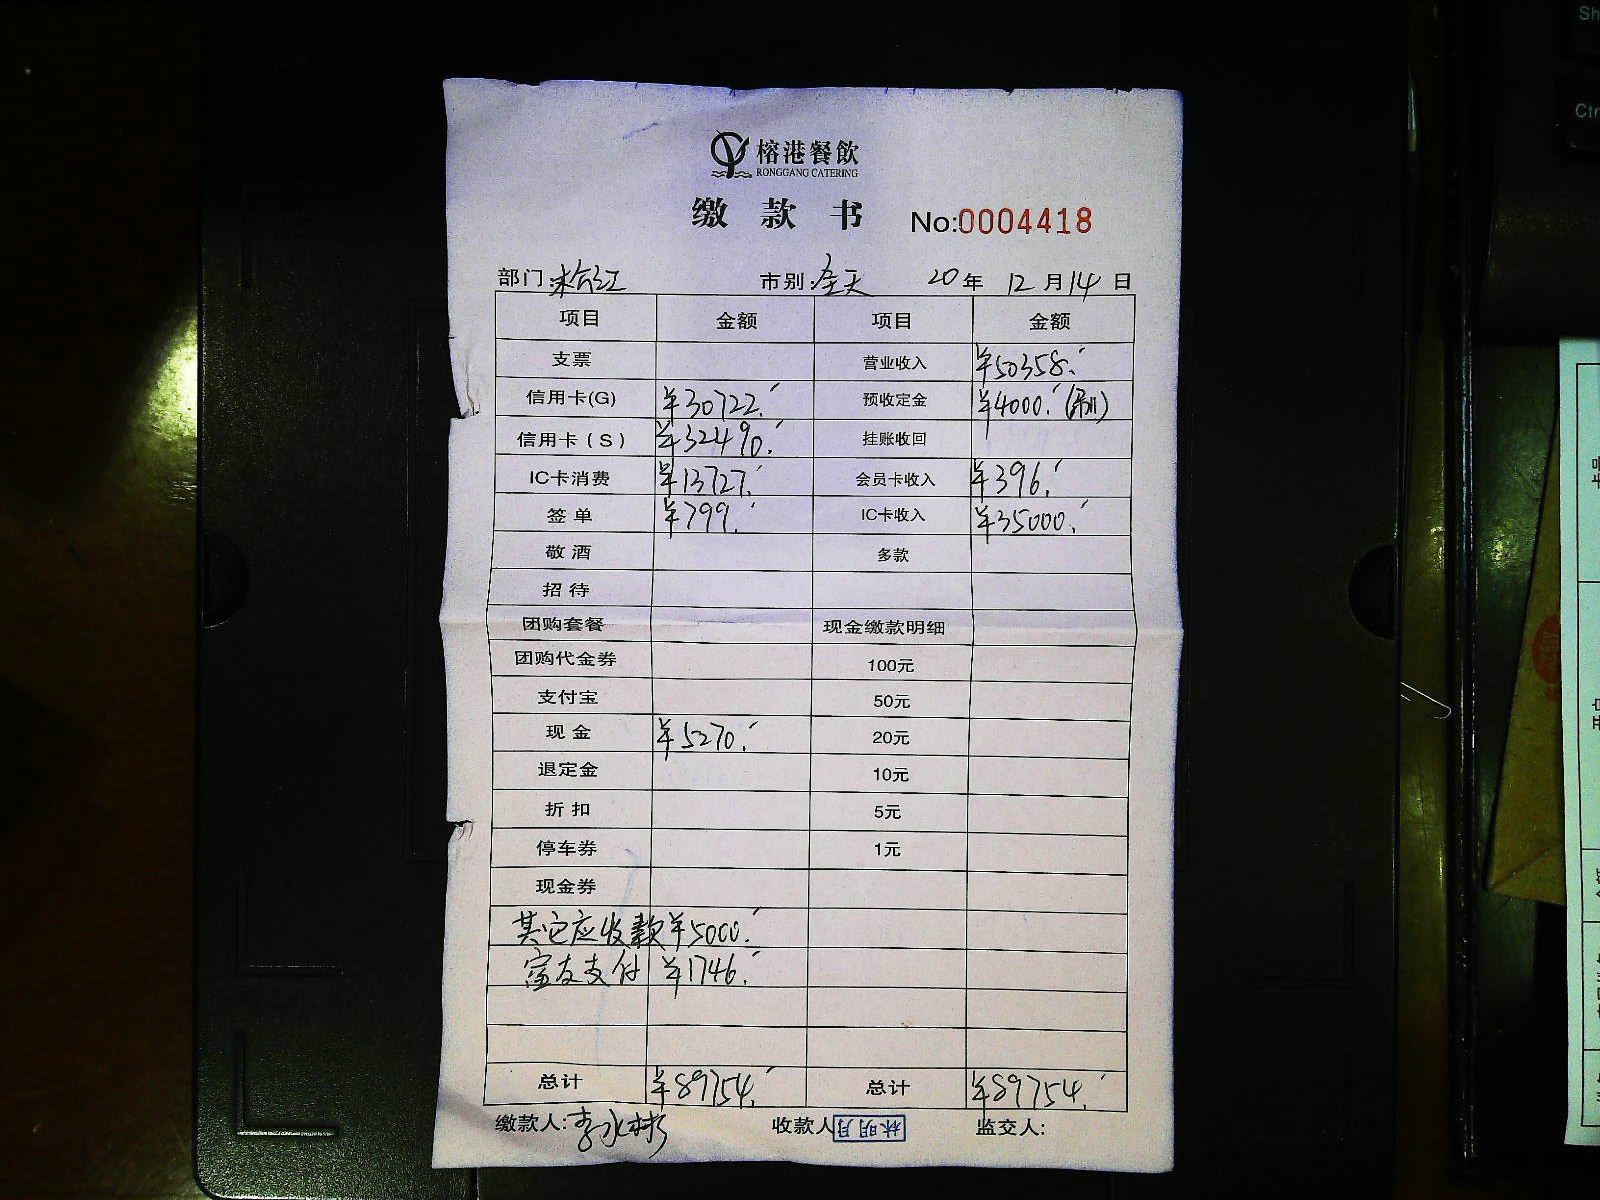 榕港餐飲
RONGGANG CATERING
缴款书 No:0004418
部门: 市别:全天 20年12月14日
项目 金额 项目 金额
支票 营业收入 ¥50358.
信用卡(G) ¥30722. 预收定金 ¥4000.
信用卡(S) ¥32490. 挂账收回
IC卡消费 ¥13727. 会员卡收入 ¥396.
签单 ¥799. IC卡收入 ¥35000.
敬酒 多款
招待
团购套餐 现金缴款明细
团购代金券 100元
支付宝 50元
现金 ¥5270. 20元
退定金 10元
折扣 5元
停车券 1元
现金券
其它应收款 ¥5000.
富友支付 ¥1746.
总计 ¥89754. 总计 ¥89754.
缴款人:李冰彬 收款人 林明月 监交人:
Sh
Ctr